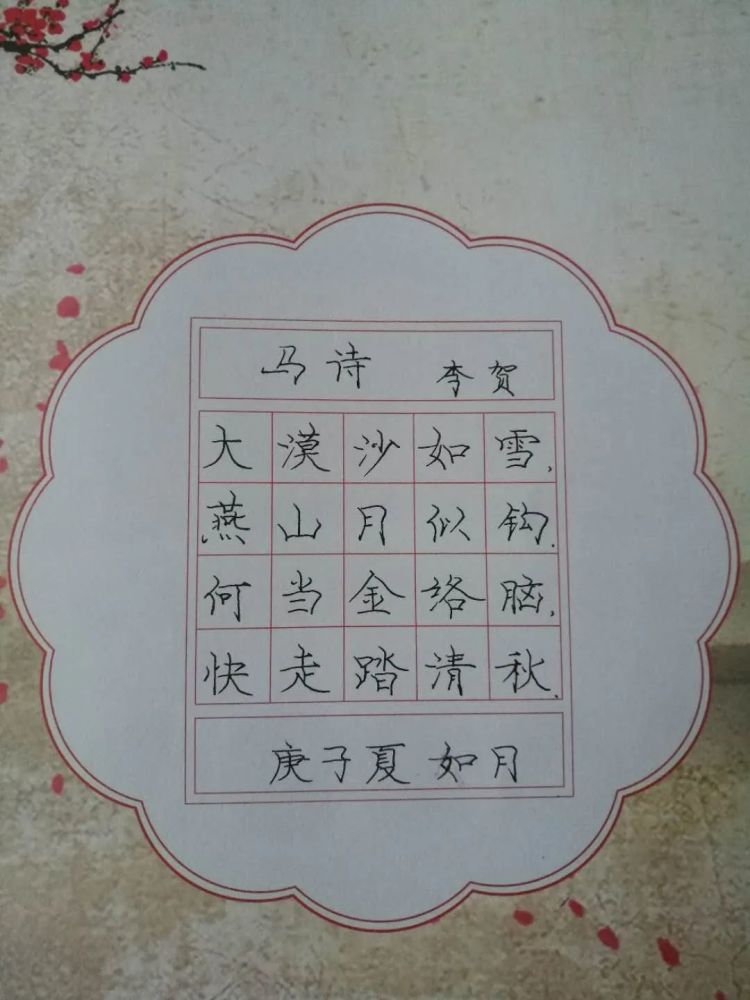 马诗 李贺
大漠沙如雪,
燕山月似钩.
何当金络脑,
快走踏清秋.
庚子夏 如月